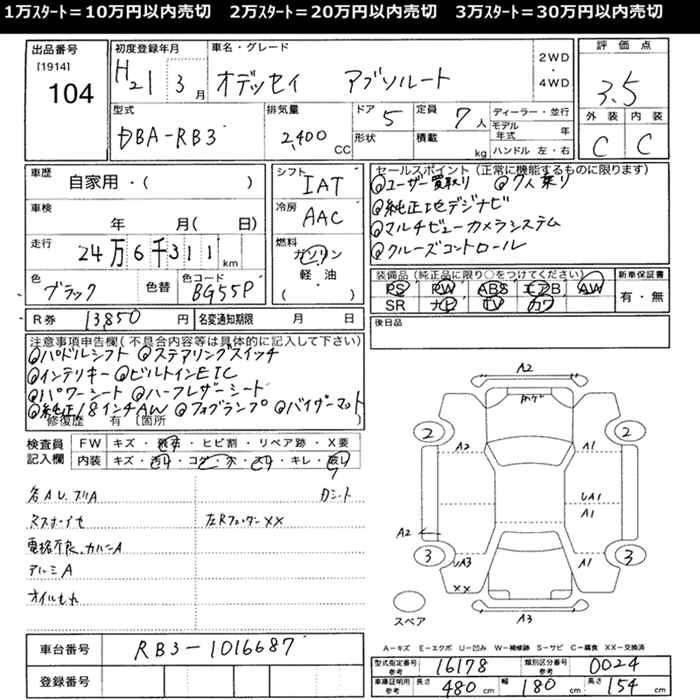 1万スタート＝10万円以内売切　2万スタート＝20万円以内売切　3万スタート＝30万円以内売切
出品番号
[1914]
104
初度登録年月
H21 3月
車名・グレード
オデッセイ アブソルート
2WD
・
4WD
評価点
3.5
外装 内装
C C
型式
DBA-RB3
排気量
2,400 CC
ドア 5
形状
定員 7人
積載 kg
ディーラー・並行
モデル年式 年
ハンドル 左・右
車歴
自家用・( )
車検
年 月( 日)
走行
24万6千311km
色
ブラック
色替
色コード
BG55P
シフト
IAT
冷房
AAC
燃料
ガソリン
軽油
( ・ )
セールスポイント(正常に機能するものに限ります)
◎ユーザー買取り ◎7人乗り
◎純正地デジナビ
◎マルチビューカメラシステム
◎クルーズコントロール
装備品(純正品に限り○をつけてください)
PS PW ABS エアB AW
SR ナビ TV カワ
新車保証書
有・無
R券 13850円
名変通知期限 月 日
後日品
注意事項申告欄(不具合内容等は具体的に記入して下さい)
◎パドルシフト ◎ステアリングスイッチ
◎インテリキー ◎ビルトインETC
◎パワーシート ◎ハーフレザーシート
◎純正18インチAW ◎フォグランプ ◎バイザーマット
修復歴 有 (箇所 )
検査員記入欄
FW キズ・飛石・ヒビ割・リペア跡・X要
内装 キズ・汚れ・コゲ・穴・スレ・キレ・破レ
各AU.スリA
Dシート
左Rフェンダー××
アルミA
オイルモレ
A2
2
2
A2
A1
UA1
A1
A2
3
3
UA3
A1
××
A3
スペア
A－キズ E－エクボ U－凹み W－補修跡 S－サビ C－腐食 XX－交換済
車台番号 RB3-1016687
登録番号
型式指定番号参考 16178
類別区分番号参考 0024
車庫証明用参考 長さ 480cm 幅 180cm 高さ 154cm